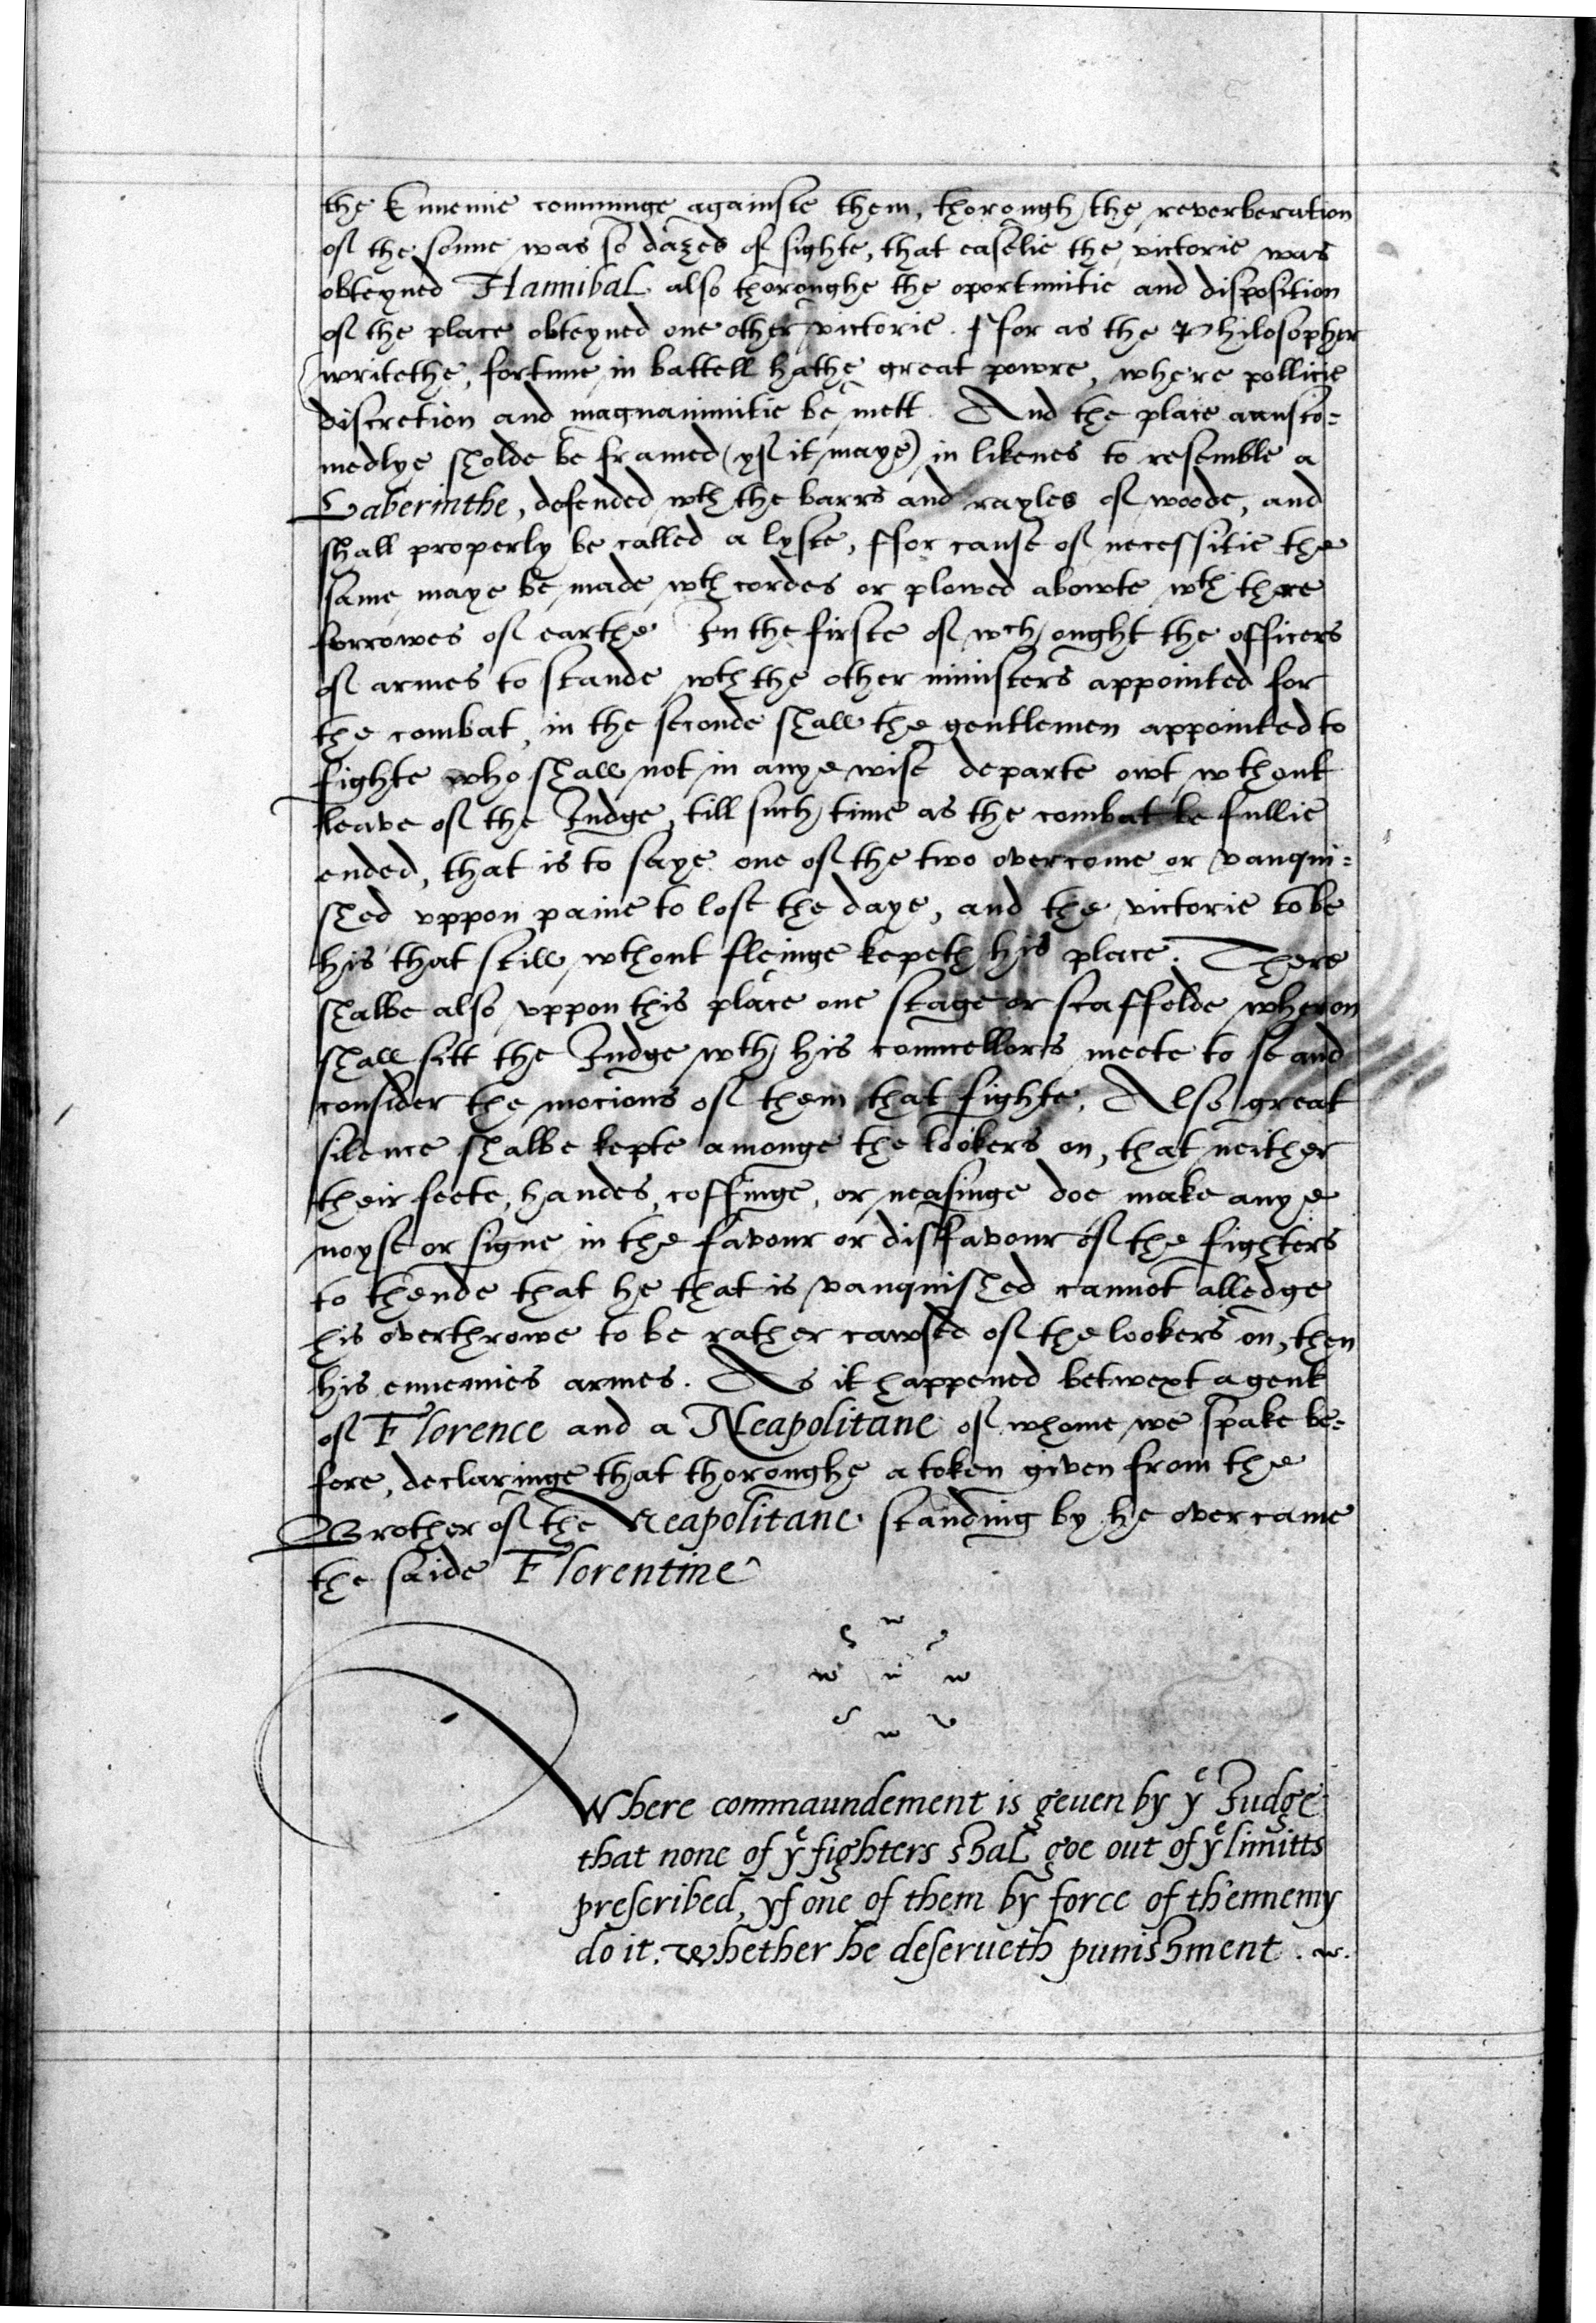 the Ennemie comminge againste them, thorough the reverberation
of the sonne was so dazed of sighte, that easelie the victorie was
obteyned Hannibal also thoroughe the oportunitie and disposition
of the place obteyned one other victorie. ffor as the Philosopher
writethe, fortune in battell hathe great powre, where pollicie
discretion and magnanimitie be mett. And the place accusto=
medlye sholde be framed (yf it maye) in likenes to resemble a
Laberinthe, defended wth the barrs and rayles of woode, and
shall properly be called a lyste, ffor cause of necessitie the
same maye be made wth cordes or plowed abowte wth there
forrowes of earthe In the firste of wch ought the officers
of armes to stande wth the other ministers appointed for
the combat, in the seconde shall the gentlemen appointed to
fighte who shall not in anye wise departe owt wthout
leave of the Judge, till such time as the combat be fullie
ended, that is to saye one of the two overcome or vanqui=
shed vppon paine to lose the daye, and the victorie to be
his that still wthout fleinge kepeth his place. There
shalbe also vppon this place one stage or scaffolde wheron
shall sitt the Judge wth his councellors meete to se and
consider the mocions of them that fighte. Also great
silence shalbe kepte amonge the lookers on, that neither
their feete, handes, coffinge, or neasinge doe make anye
noyse or signe in the favour or disfavour of the fighters
to thende that he that is vanquished cannot alledge
his overthrowe to be rather cawsed of the lookers on, then
his ennemies armes. As it happened betwext a gent
of Florence and a Neapolitane of whome we spake be=
fore, declaringe that thoroughe a token given from the
Brother of the Neapolitane standing by he overcame
the saide Florentine
Where commaundement is geuen by ye Judge
that none of ye fighters shal goe out of ye limitts
prescribed, yf one of them by force of th'ennemy
do it. Whether he deserueth punishment.